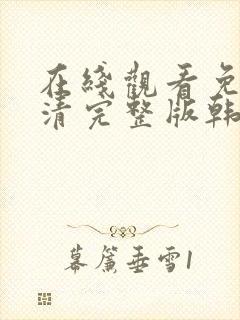 在綫觀看免
清完整版韩
幕簾垂雪1